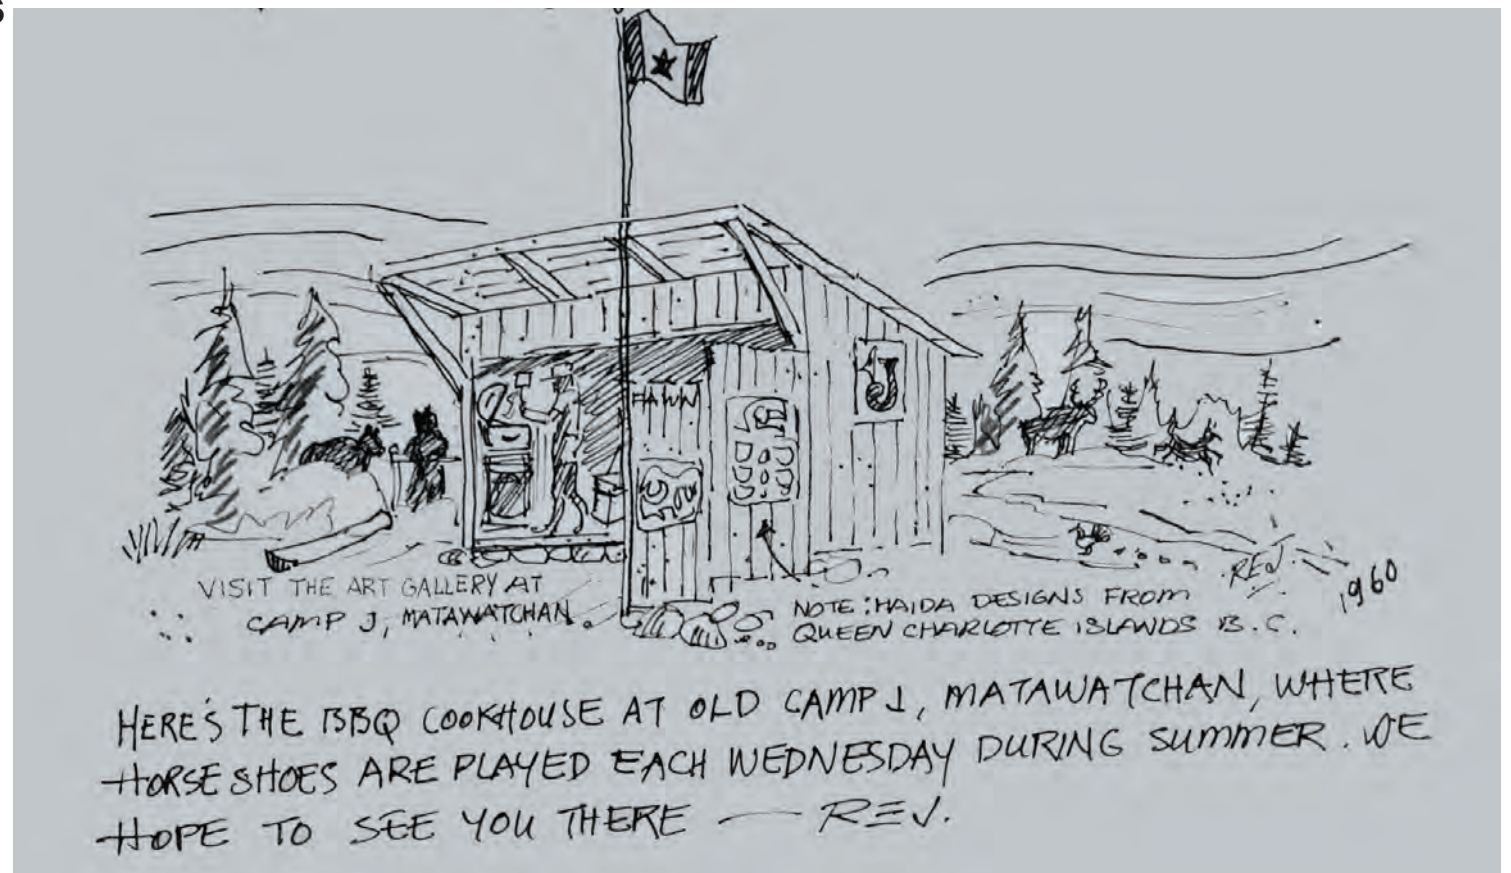 S
HAWN
VISIT THE ART GALLERY AT
CAMP J, MATAWATCHAN.
NOTE: HAIDA DESIGNS FROM
QUEEN CHARLOTTE ISLANDS B.C.
REJ.
1960
HERE'S THE BBQ COOKHOUSE AT OLD CAMP J, MATAWATCHAN, WHERE
HORSESHOES ARE PLAYED EACH WEDNESDAY DURING SUMMER. WE
HOPE TO SEE YOU THERE — REJ.